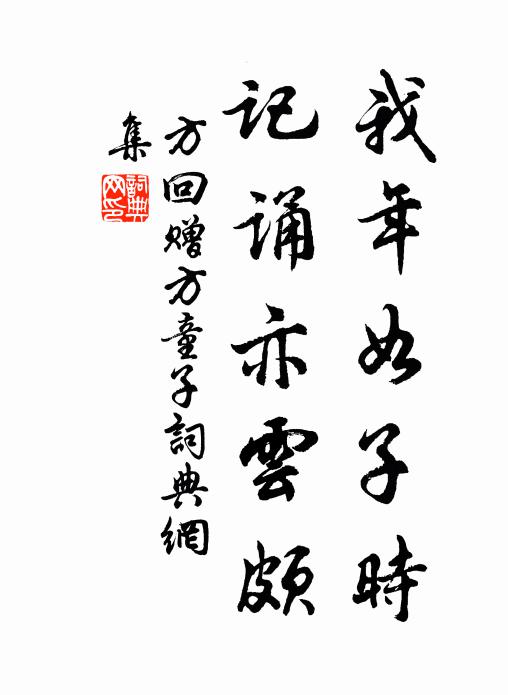 我年如子時
記誦亦雲頗
方回贈方童子詞典網
集
詞典网印